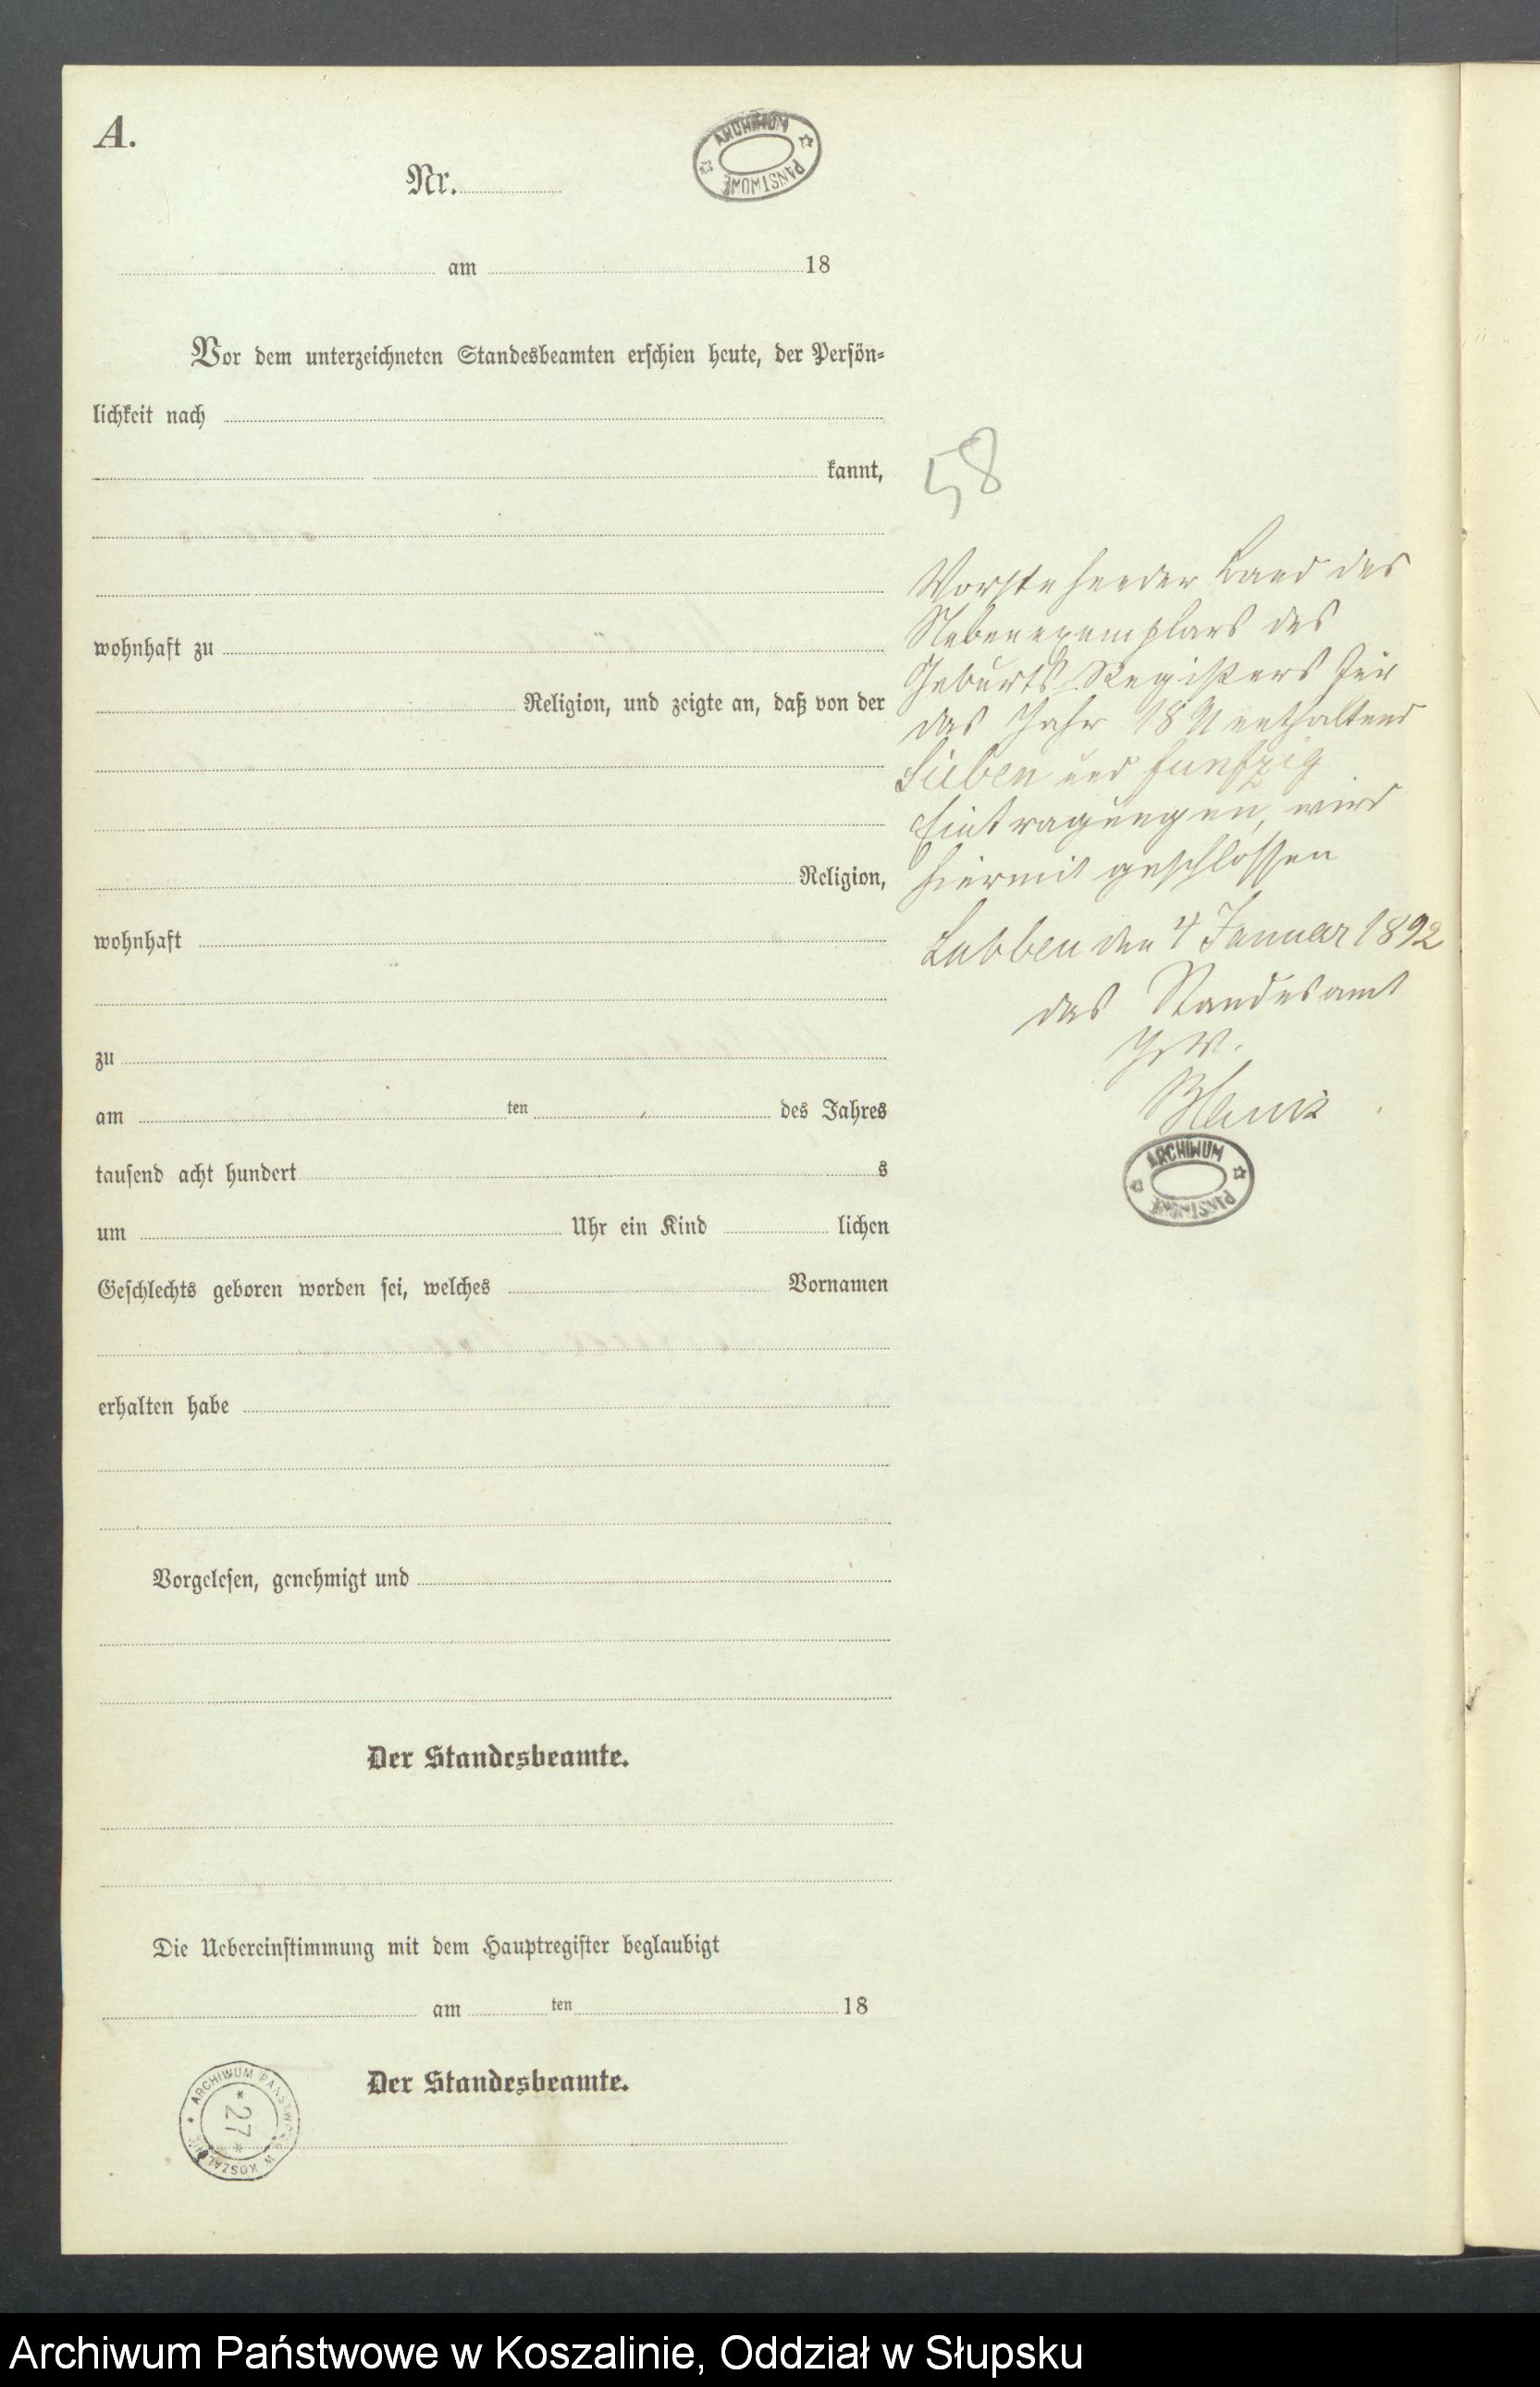 A.
Nr.
ARCHIWUM PAŃSTWOWE
am 18
Vor dem unterzeichneten Standesbeamten erschien heute, der Persön-
lichkeit nach
kannt,
wohnhaft zu
Religion, und zeigte an, daß von der
Religion,
wohnhaft
zu
am ten des Jahres
tausend acht hundert s
um Uhr ein Kind lichen
Geschlechts geboren worden sei, welches Vornamen
erhalten habe
Vorgelesen, genehmigt und
Der Standesbeamte.
Die Uebereinstimmung mit dem Hauptregister beglaubigt
am ten 18
Der Standesbeamte.
ARCHIWUM PAŃSTWOWE W KOSZALINIE
27
58
Vorstehender Band des
Nebenexemplars des
Geburts-Registers für
das Jahr 1891 enthaltend
Sieben und funfzig
Eintragungen, wird
hiermit geschlossen
Labben den 4 Januar 1892
das Standesamt
ARCHIWUM PAŃSTWOWE
Archiwum Państwowe w Koszalinie, Oddział w Słupsku